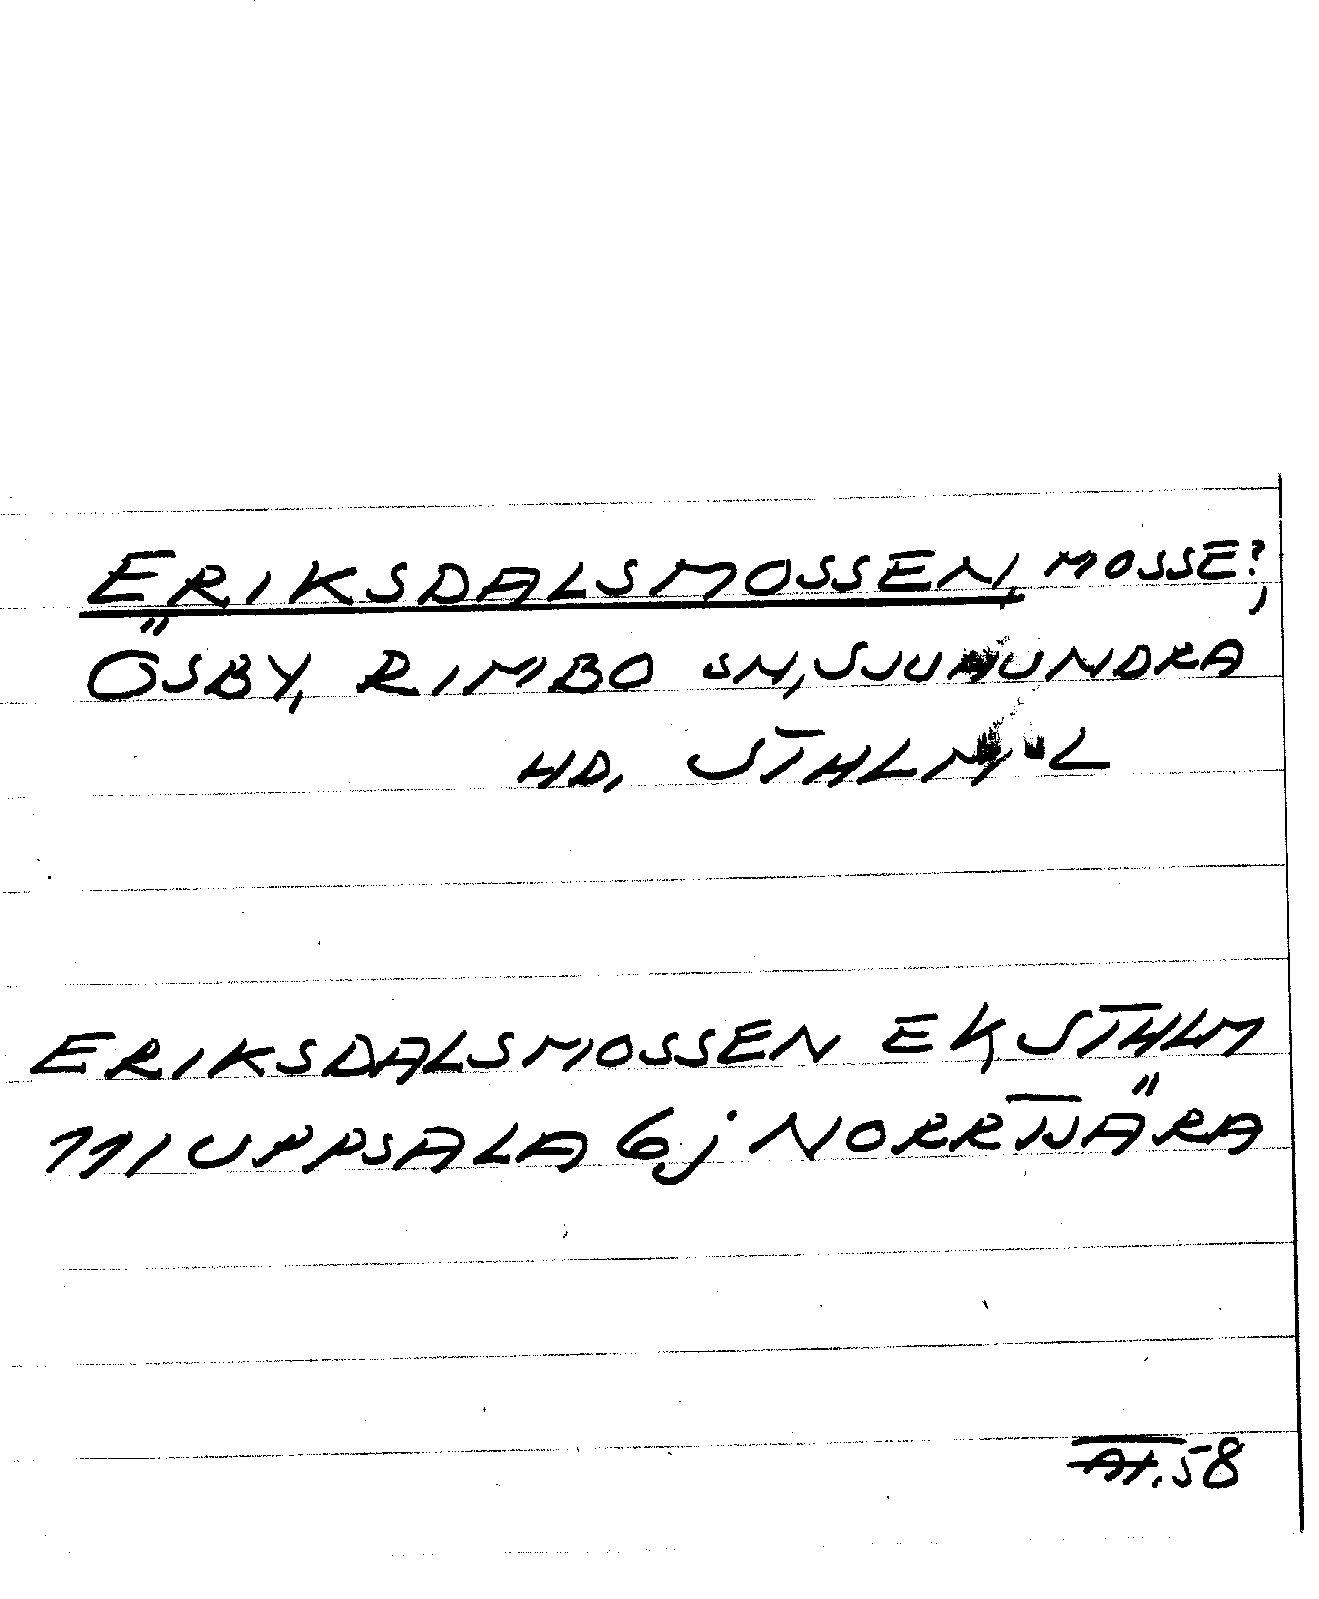 ERIKSDALSMOSSEN, MOSSE?,
ÖSBY, RIMBO SN, SJUHUNDRA
HD, STHLMS L
ERIKSDALSMOSSEN EK, STHLM
111 UPPSALA 6j NORRTJÄRA
58